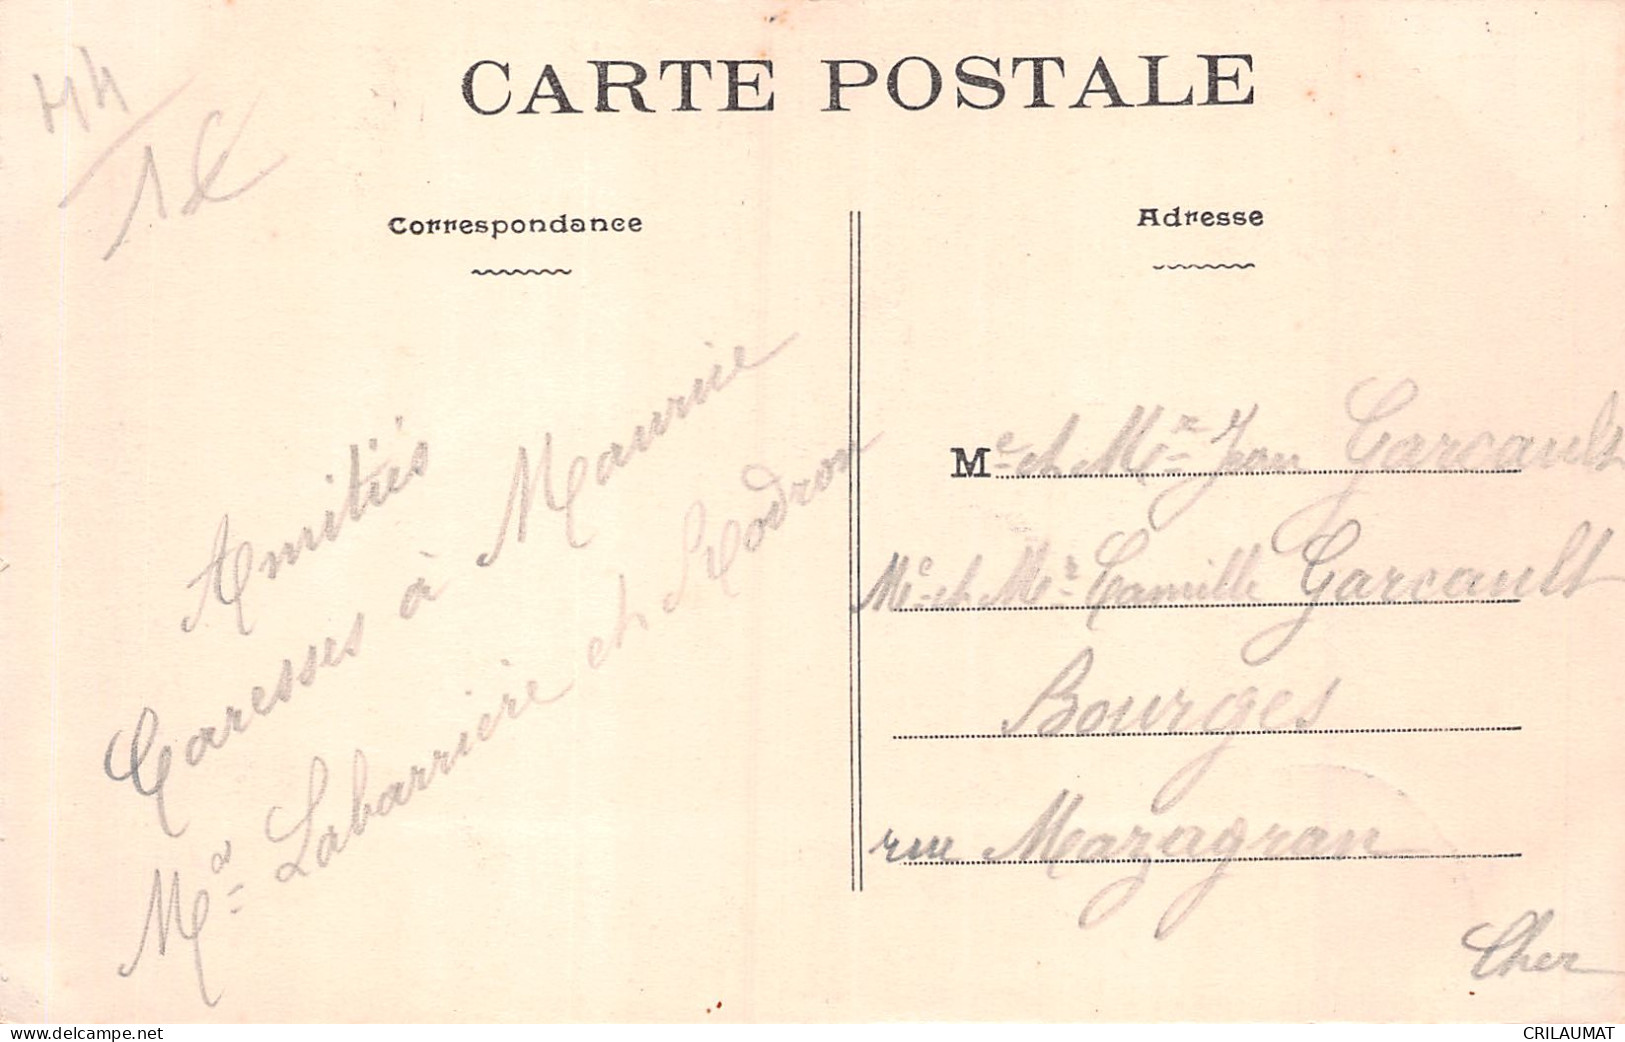 CARTE POSTALE
44
1€
Correspondance
Amitiés
Caresses à Maurice
Labarrière et Modron
Adresse
Me et Mr Jean Garcault
Me et Mr Camille Garcault
Bourges
rue Mazagran
Cher
www.delcampe.net
CRILAUMAT